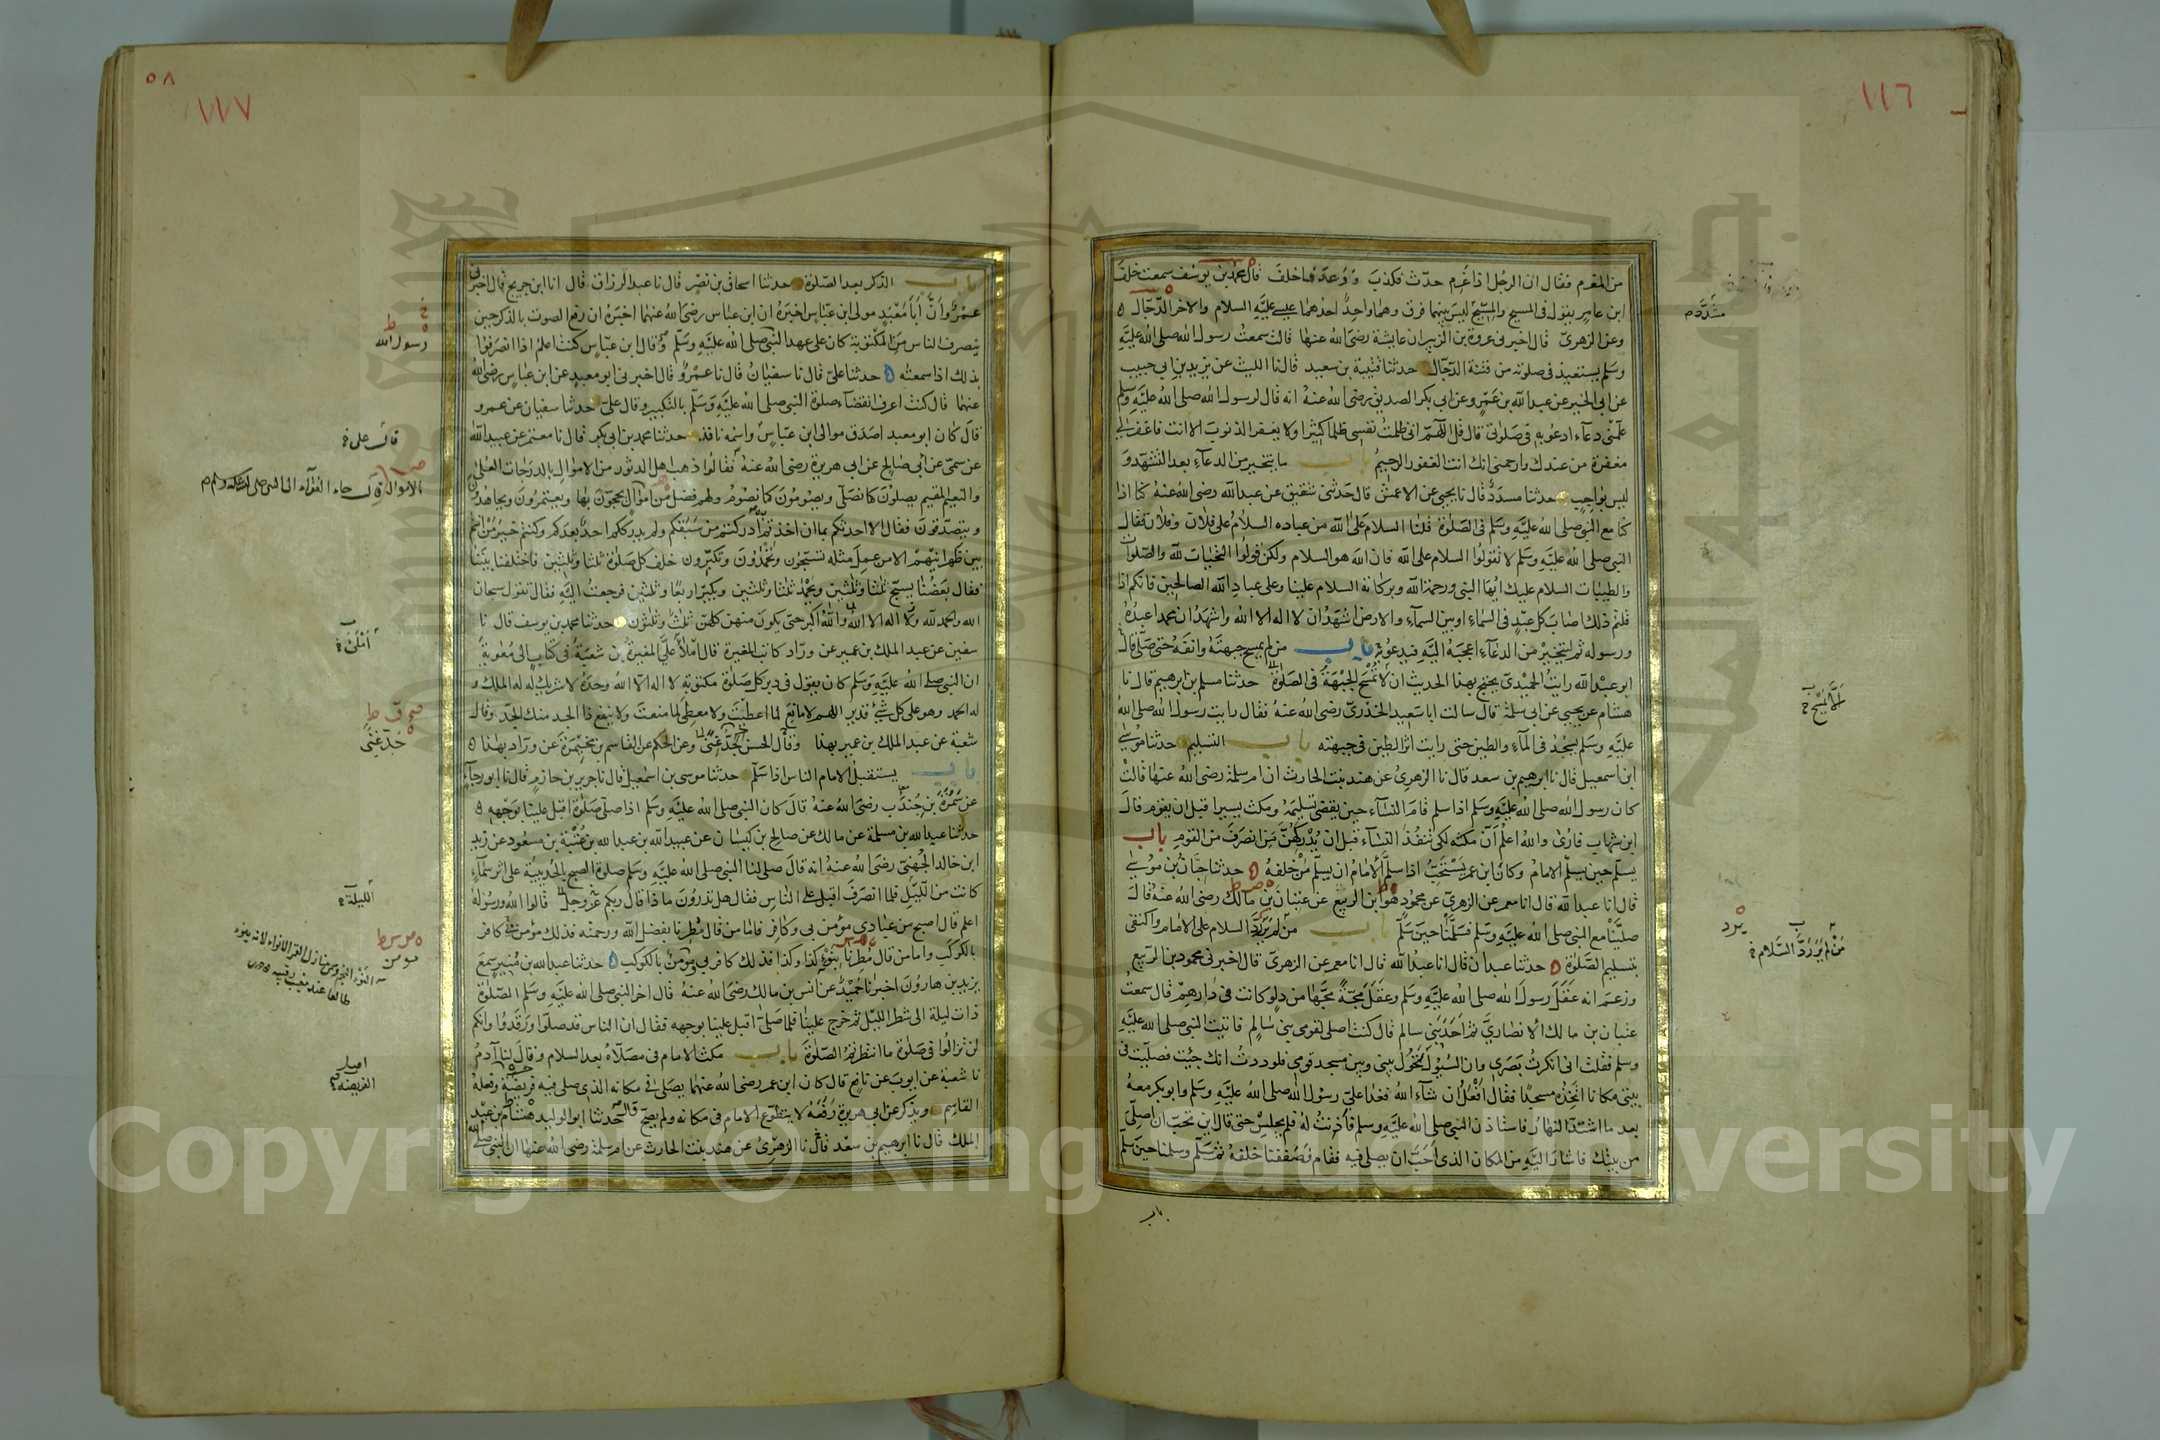 ١١٦
من المغرم فقال ان الرجل اذا غرم حدث فكذب ووعد فاخلف قال محمد بن يوسف سمعت خلف
ابن عامر يقول فى المسيح والمسيح ليس بينهما فرق وهما واحد احدهما عيسى عليه السلام والاخر الدجال ه
وعن الزهرى قال اخبرنى عروة بن الزبير ان عايشة رضى الله عنها قالت سمعت رسول الله صلى الله عليه
وسلم يستعيذ فى صلوته من فتنة الدجال حدثنا قتيبة بن سعيد قال نا الليث عن يزيد بن ابى حبيب
عن ابى الخير عن عبد الله بن عمرو عن ابى بكر الصديق رضى الله عنه انه قال لرسول الله صلى الله عليه وسلم
علمنى دعاء ادعو به فى صلوتى قال قل اللهم انى ظلمت نفسى ظلما كثيرا ولا يغفر الذنوب الا انت فاغفر لى
مغفرة من عندك وارحمنى انك انت الغفور الرحيم باب ما يتخير من الدعاء بعد التشهد و
ليس بواجب حدثنا مسدد قال نا يحيى عن الاعمش قال حدثنى شقيق عن عبد الله رضى الله عنه كنا اذا
كنا مع النبى صلى الله عليه وسلم فى الصلوة قلنا السلام على الله من عباده السلام على فلان وفلان فقال
النبى صلى الله عليه وسلم لا تقولوا السلام على الله فان الله هو السلام ولكن قولوا التحيات لله والصلوات
والطيبات السلام عليك ايها النبى ورحمة الله وبركاته السلام علينا وعلى عباد الله الصالحين فانكم اذا
قلتم ذلك اصاب كل عبد فى السماء او بين السماء والارض اشهد ان لا اله الا الله واشهد ان محمدا عبده
ورسوله ثم ليتخير من الدعاء اعجبه اليه فيدعو به باب من لم يمسح جبهته وانفه حتى صلى قال
ابو عبد الله رايت الحميدى يحتج بهذا الحديث ان لا تمسح الجبهة فى الصلوة حدثنا مسلم بن ابرهيم قال نا
هشام عن يحيى عن ابى سلمة قال سالت ابا سعيد الخدرى رضى الله عنه فقال رايت رسول الله صلى الله
عليه وسلم يسجد فى الماء والطين حتى رايت اثر الطين فى جبهته باب التسليم حدثنا موسى
ابن اسمعيل قال نا ابرهيم بن سعد قال نا الزهرى عن هند بنت الحارث ان ام سلمة رضى الله عنها قالت
كان رسول الله صلى الله عليه وسلم اذا سلم قام النساء حين يقضى تسليمه ومكث يسيرا قبل ان يقوم قال
ابن شهاب فارى والله اعلم ان مكثه لكى تنفذ النساء قبل ان يدركهن من انصرف من القوم باب
يسلم حين يسلم الامام وكان ابن عمر يستحب اذا سلم الامام ان يسلم من خلفه ه حدثنا حبان بن موسى
قال انا عبد الله قال انا معمر عن الزهرى عن محمود هو ابن الربيع عن عتبان بن مالك رضى الله عنه قال
صلينا مع النبى صلى الله عليه وسلم فسلمنا حين سلم باب من لم يردد السلام على الامام واكتفى
بتسليم الصلوة ه حدثنا عبدان قال انا عبد الله قال انا معمر عن الزهرى قال اخبرنى محمود بن الربيع
وزعم انه عقل رسول الله صلى الله عليه وسلم وعقل مجة مجها من دلو كانت فى دارهم قال سمعت
عتبان بن مالك الانصارى ثم احد بنى سالم قال كنت اصلى لقومى بنى سالم فاتيت النبى صلى الله عليه
وسلم فقلت انى انكرت بصرى وان السيول تحول بينى وبين مسجد قومى فلوددت انك جيت فصليت فى
بيتى مكانا اتخذه مسجدا فقال افعل ان شاء الله فغدا على رسول الله صلى الله عليه وسلم وابو بكر معه
بعد ما اشتد النهار فاستاذن النبى صلى الله عليه وسلم فاذنت له فلم يجلس حتى قال اين تحب ان اصلى
من بيتك فاشار اليه من المكان الذى احب ان يصلى فيه فقام فصففنا خلفه ثم سلم وسلمنا حين سلم
باب
يرد
من لم يردد السلام
٥٨
١١٧
باب الذكر بعد الصلوة حدثنا اسحاق بن نصر قال نا عبد الرزاق قال انا ابن جريج قال اخبرنى
عمرو ان ابا معبد مولى ابن عباس اخبره ان ابن عباس رضى الله عنهما اخبره ان رفع الصوت بالذكر حين
ينصرف الناس من المكتوبة كان على عهد النبى صلى الله عليه وسلم وقال ابن عباس كنت اعلم اذا انصرفوا
بذلك اذا سمعته ه حدثنا على قال نا سفيان قال نا عمرو قال اخبرنى ابو معبد عن ابن عباس رضى الله
عنهما قال كنت اعرف انقضاء صلوة النبى صلى الله عليه وسلم بالتكبير وقال على حدثنا سفيان عن عمرو
قال كان ابو معبد اصدق موالى ابن عباس واسمه نافذ حدثنا محمد بن ابى بكر قال نا معتمر عن عبيد الله
عن سمى عن ابى صالح عن ابى هريرة رضى الله عنه فقالوا ذهب اهل الدثور من الاموال بالدرجات العلى
والنعيم المقيم يصلون كما نصلى ويصومون كما نصوم ولهم فضل من اموال يحجون بها ويعتمرون ويجاهدون
ويتصدقون فقال الا احدثكم بما ان اخذتم به ادركتم من سبقكم ولم يدرككم احد بعدكم وكنتم خير من انتم
بين ظهرانيهم الا من عمل مثله تسبحون وتحمدون وتكبرون خلف كل صلوة ثلثا وثلثين فاختلفنا بيننا
فقال بعضنا يسبح ثلثا وثلثين ويحمد ثلثا وثلثين ويكبر اربعا وثلثين فرجعت اليه فقال تقول سبحان
الله والحمد لله ولا اله الا الله والله اكبر حتى يكون منهن كلهن ثلث وثلثون حدثنا محمد بن يوسف قال نا
سفين عن عبد الملك بن عمير عن وراد كاتب المغيرة قال املا على المغيرة بن شعبة فى كتاب الى معوية
ان النبى صلى الله عليه وسلم كان يقول فى دبر كل صلوة مكتوبة لا اله الا الله وحده لا شريك له له الملك و
له الحمد وهو على كل شئ قدير اللهم لا مانع لما اعطيت ولا معطى لما منعت ولا ينفع ذا الجد منك الجد وقال
شعبة عن عبد الملك بن عمير بهذا وقال الحسن الجد غنى وعن الحكم عن القاسم بن مخيمرة عن وراد بهذا ه
باب يستقبل الامام الناس اذا سلم حدثنا موسى بن اسمعيل قال نا جرير بن حازم قال نا ابو رجاء
عن سمرة بن جندب رضى الله عنه قال كان النبى صلى الله عليه وسلم اذا صلى صلوة اقبل علينا بوجهه ه
حدثنا عبد الله بن مسلمة عن مالك عن صالح بن كيسان عن عبيد الله بن عبد الله بن عتبة بن مسعود عن زيد
ابن خالد الجهنى رضى الله عنه انه قال صلى لنا النبى صلى الله عليه وسلم صلوة الصبح بالحديبية على اثر سماء
كانت من الليل فلما انصرف اقبل على الناس فقال هل تدرون ماذا قال ربكم عز وجل قالوا الله ورسوله
اعلم قال اصبح من عبادى مؤمن بى وكافر فاما من قال مطرنا بفضل الله ورحمته فذلك مؤمن بى كافر
بالكوكب واما من قال مطرنا بنوء كذا وكذا فذلك كافر بى ومؤمن بالكوكب ه حدثنا عبد الله بن منير سمع
يزيد بن هارون اخبرنا حميد عن انس بن مالك رضى الله عنه قال اخر النبى صلى الله عليه وسلم الصلوة
ذات ليلة الى شطر الليل ثم خرج علينا فلما صلى اقبل علينا بوجهه فقال ان الناس قد صلوا ورقدوا وانكم
لن تزالوا فى صلوة ما انتظرتم الصلوة باب مكث الامام فى مصلاه بعد السلام وقال لنا آدم
نا شعبة عن ايوب عن نافع قال كان ابن عمر رضى الله عنهما يصلى فى مكانه الذى صلى فيه فريضة وفعله
القاسم ويذكر عن ابى هريرة رفعه لا يتطوع الامام فى مكانه ولم يصح قال حدثنا ابو الوليد هشام بن عبد
الملك قال نا ابرهيم بن سعد قال نا الزهرى عن هند بنت الحارث عن ام سلمة رضى الله عنها ان النبى صلى الله
رسول الله
قال على
جد غنى
الليلة
مومن
الفريضة
Copyright © King Saud University